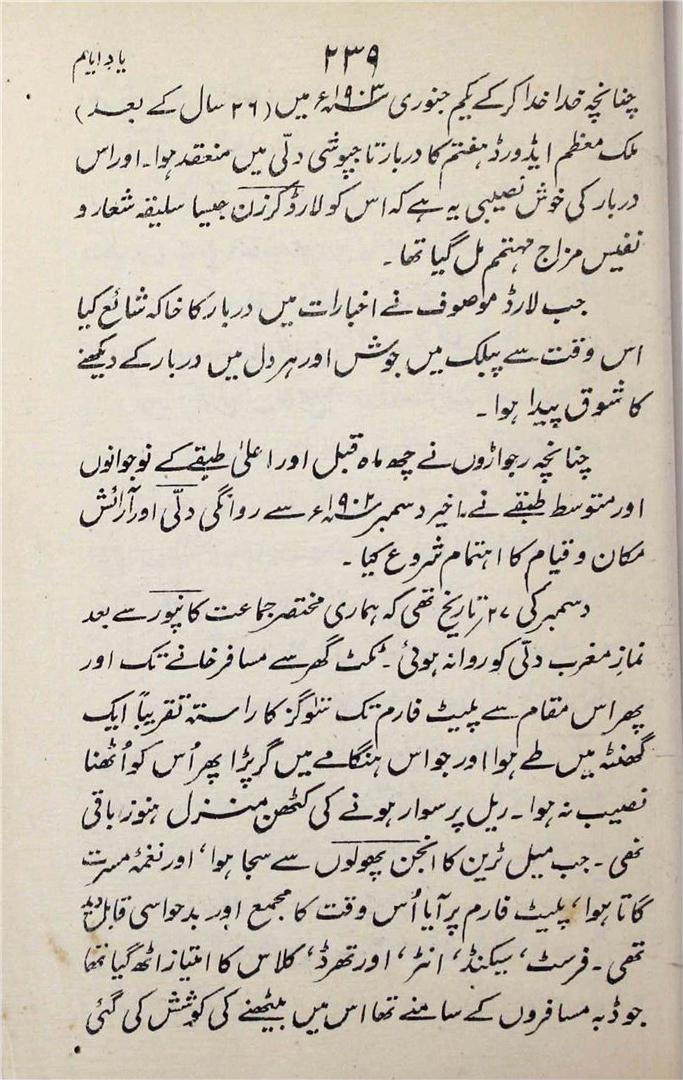 ۲۳۹
یادِ ایام
چنانچہ خدا خدا کرکے یکم جنوری ۱۹۰۳ء میں (۲۶ سال کے بعد)
ملک معظم ایڈورڈ ہفتم کا دربار تاجپوشی دلّی میں منعقد ہوا۔ اور اس
دربار کی خوش نصیبی یہ ہے کہ اس کو لارڈ کرزن جیسا سلیقہ شعار و
نفیس مزاج مہتمم مل گیا تھا۔
جب لارڈ موصوف نے اخبارات میں دربار کا خاکہ شائع کیا
اس وقت سے پبلک میں جوش اور ہر دل میں دربار کے دیکھنے
کا شوق پیدا ہوا۔
چنانچہ رجواڑوں نے چھ ماہ قبل اور اعلیٰ طبقے کے نوجوانوں
اور متوسط طبقے نے اخیر دسمبر ۱۹۰۲ء سے روانگی دلّی اور آرائش
مکان و قیام کا اہتمام شروع کیا۔
دسمبر کی ۲۷ تاریخ تھی کہ ہماری مختصر جماعت کانپور سے بعد
نمازِ مغرب دلّی کو روانہ ہوئی۔ ٹکٹ گھر سے مسافر خانے تک اور
پھر اس مقام سے پلیٹ فارم تک سَو گز کا راستہ تقریباً ایک
گھنٹہ میں طے ہوا اور جو اس ہنگامے میں گر پڑا پھر اُس کو اُٹھنا
نصیب نہ ہوا۔ ریل پر سوار ہونے کی کٹھن منزل ہنوز باقی
تھی۔ جب میل ٹرین کا انجن پھولوں سے سجا ہوا، اور نغمۂ مسرت
گاتا ہوا، پلیٹ فارم پر آیا اُس وقت کا مجمع اور بدحواسی قابل دید
تھی۔ فرسٹ، سیکنڈ، انٹر، اور تھرڈ، کلاس کا امتیاز اٹھ گیا تھا
جو ڈبہ مسافروں کے سامنے تھا اس میں بیٹھنے کی کوشش کی گئی